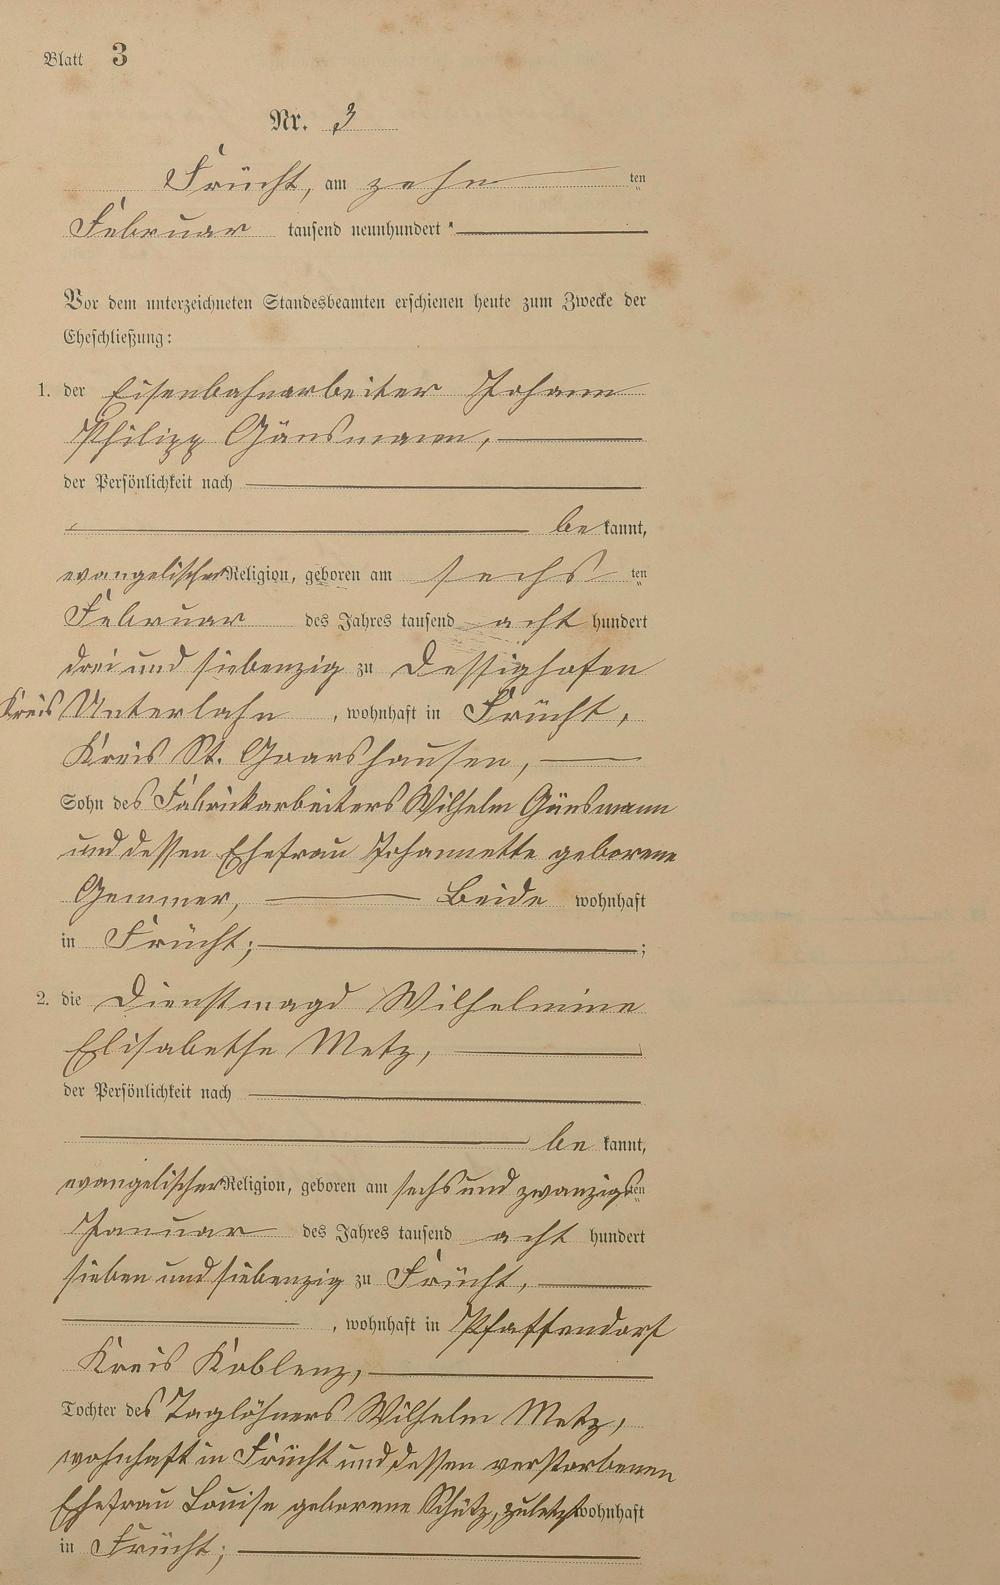 Blatt 3
Nr. 3
Frücht, am zehn ten
Februar tausend neunhundert
Vor dem unterzeichneten Standesbeamten erschienen heute zum Zwecke der
Eheschließung:
1. der Eisenbahnarbeiter Johann
Philipp Gänsmann,
der Persönlichkeit nach
be kannt,
evangelischer Religion, geboren am sechs ten
Februar des Jahres tausend acht hundert
drei und siebenzig zu Dessighofen
Kreis Unterlahn, wohnhaft in Frücht,
Kreis St. Goarshausen,
Sohn des Fabrikarbeiters Wilhelm Gänsmann
und dessen Ehefrau Johannette geborene
Gemmer, Beide wohnhaft
in Frücht; ;
2. die Dienstmagd Wilhelmine
Elisabethe Metz,
der Persönlichkeit nach
be kannt,
evangelischer Religion, geboren am sechs und zwanzigsten
Januar des Jahres tausend acht hundert
sieben und siebenzig zu Frücht,
, wohnhaft in Pfaffendorf
Kreis Koblenz,
Tochter des Taglöhners Wilhelm Metz,
wohnhaft in Frücht und dessen verstorbenen
Ehefrau Louise geborene Schütz, zuletzt wohnhaft
in Frücht;